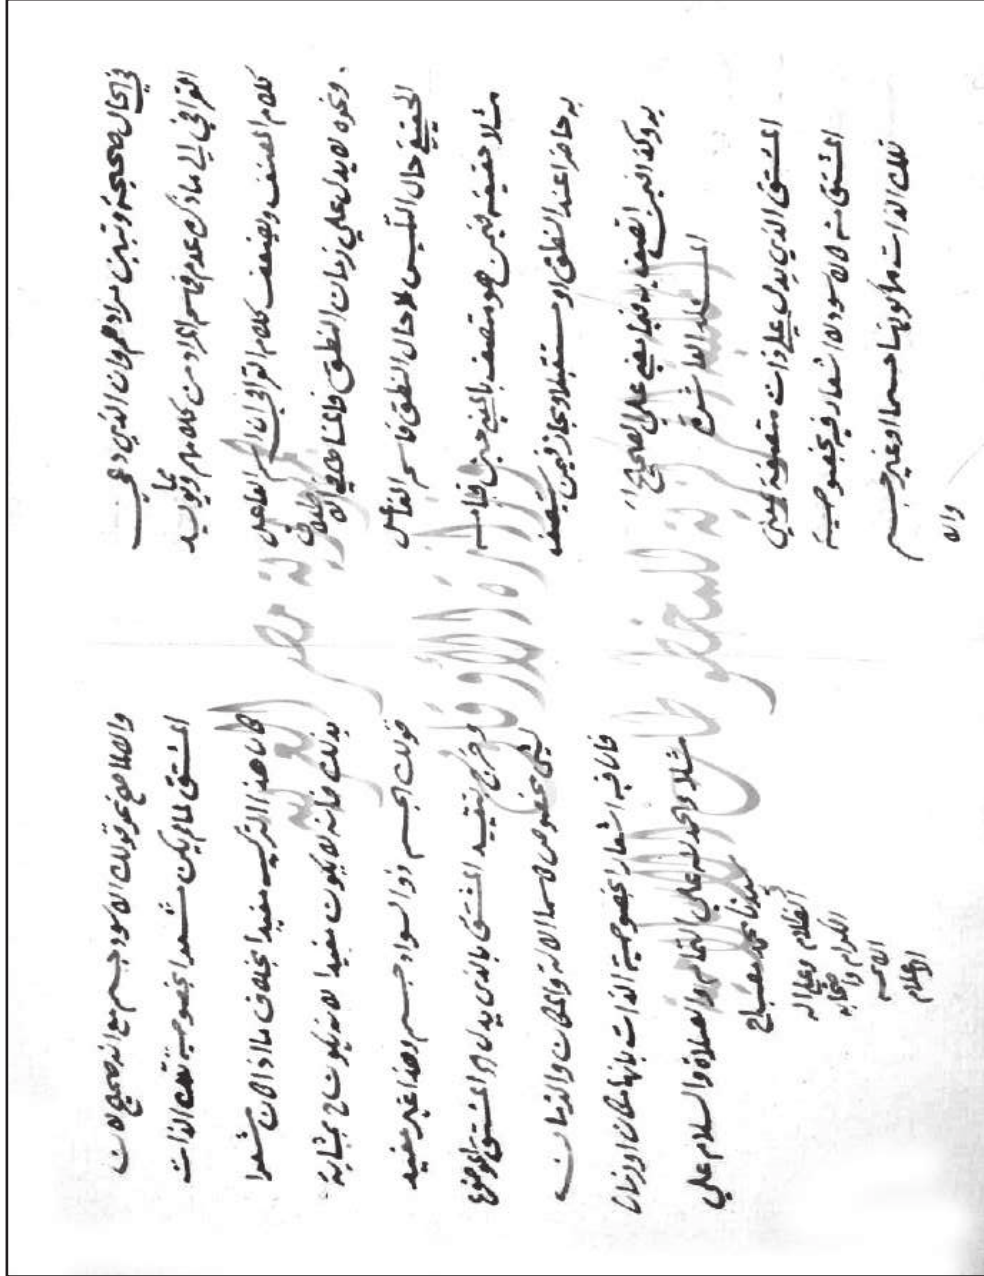 في الحال صحيحة وتبين مرادهم وان الذي دعي
القرافي الي ما ذكره عدم فهمه المراد من كلامهم ويؤيد
كلام المصنف ويضعف كلام القرافي ان اسم الفاعل
ونحوه لا يدل علي زمان النطق فالمناط في الاطلاق
الحقيقي حال التلبس لا حال النطق فاسم الفاعل
مثلا حقيقة فيمن هو متصف بالمعني حين قيامه
به حاضرا عند النطق او مستقبلا ومجاز فيمن سيتصف
به وكذا فيمن اتصف به فيما مضي علي الصحيح
المسئلة العاشرة
المشتق الذي يدل علي ذات متصفة بمعني
المشتق منه كالاسود لا اشعار فيه بخصوصية
تلك الذات من كونها جسما او غير جسم
والا
والا لما صح نحو قولك الاسود جسم مع انه صحيح لان
المشتق لما لم يكن مشعرا بخصوصية تلك الذات
كان هذا التركيب مفيدا بخلاف ما اذا كان مشعرا
بذلك فانه لا يكون مفيدا لانه يكون ح بمثابة
قولك الجسم ذو السواد جسم وهذا غير مفيد
وخرج بتقييد المشتق بالذي يدل الخ المشتق الموضوع
لشئ مخصوص كاسما الالة والمكان والزمان
فان فيه اشعارا بخصوصية الذات بانها مكان او زمان
مثلا والحمد لله علي التمام والصلاة والسلام علي
سيدنا محمد مصباح
الظلام وعلي اله
الكرام واصحابه
الائمة
الاعلام